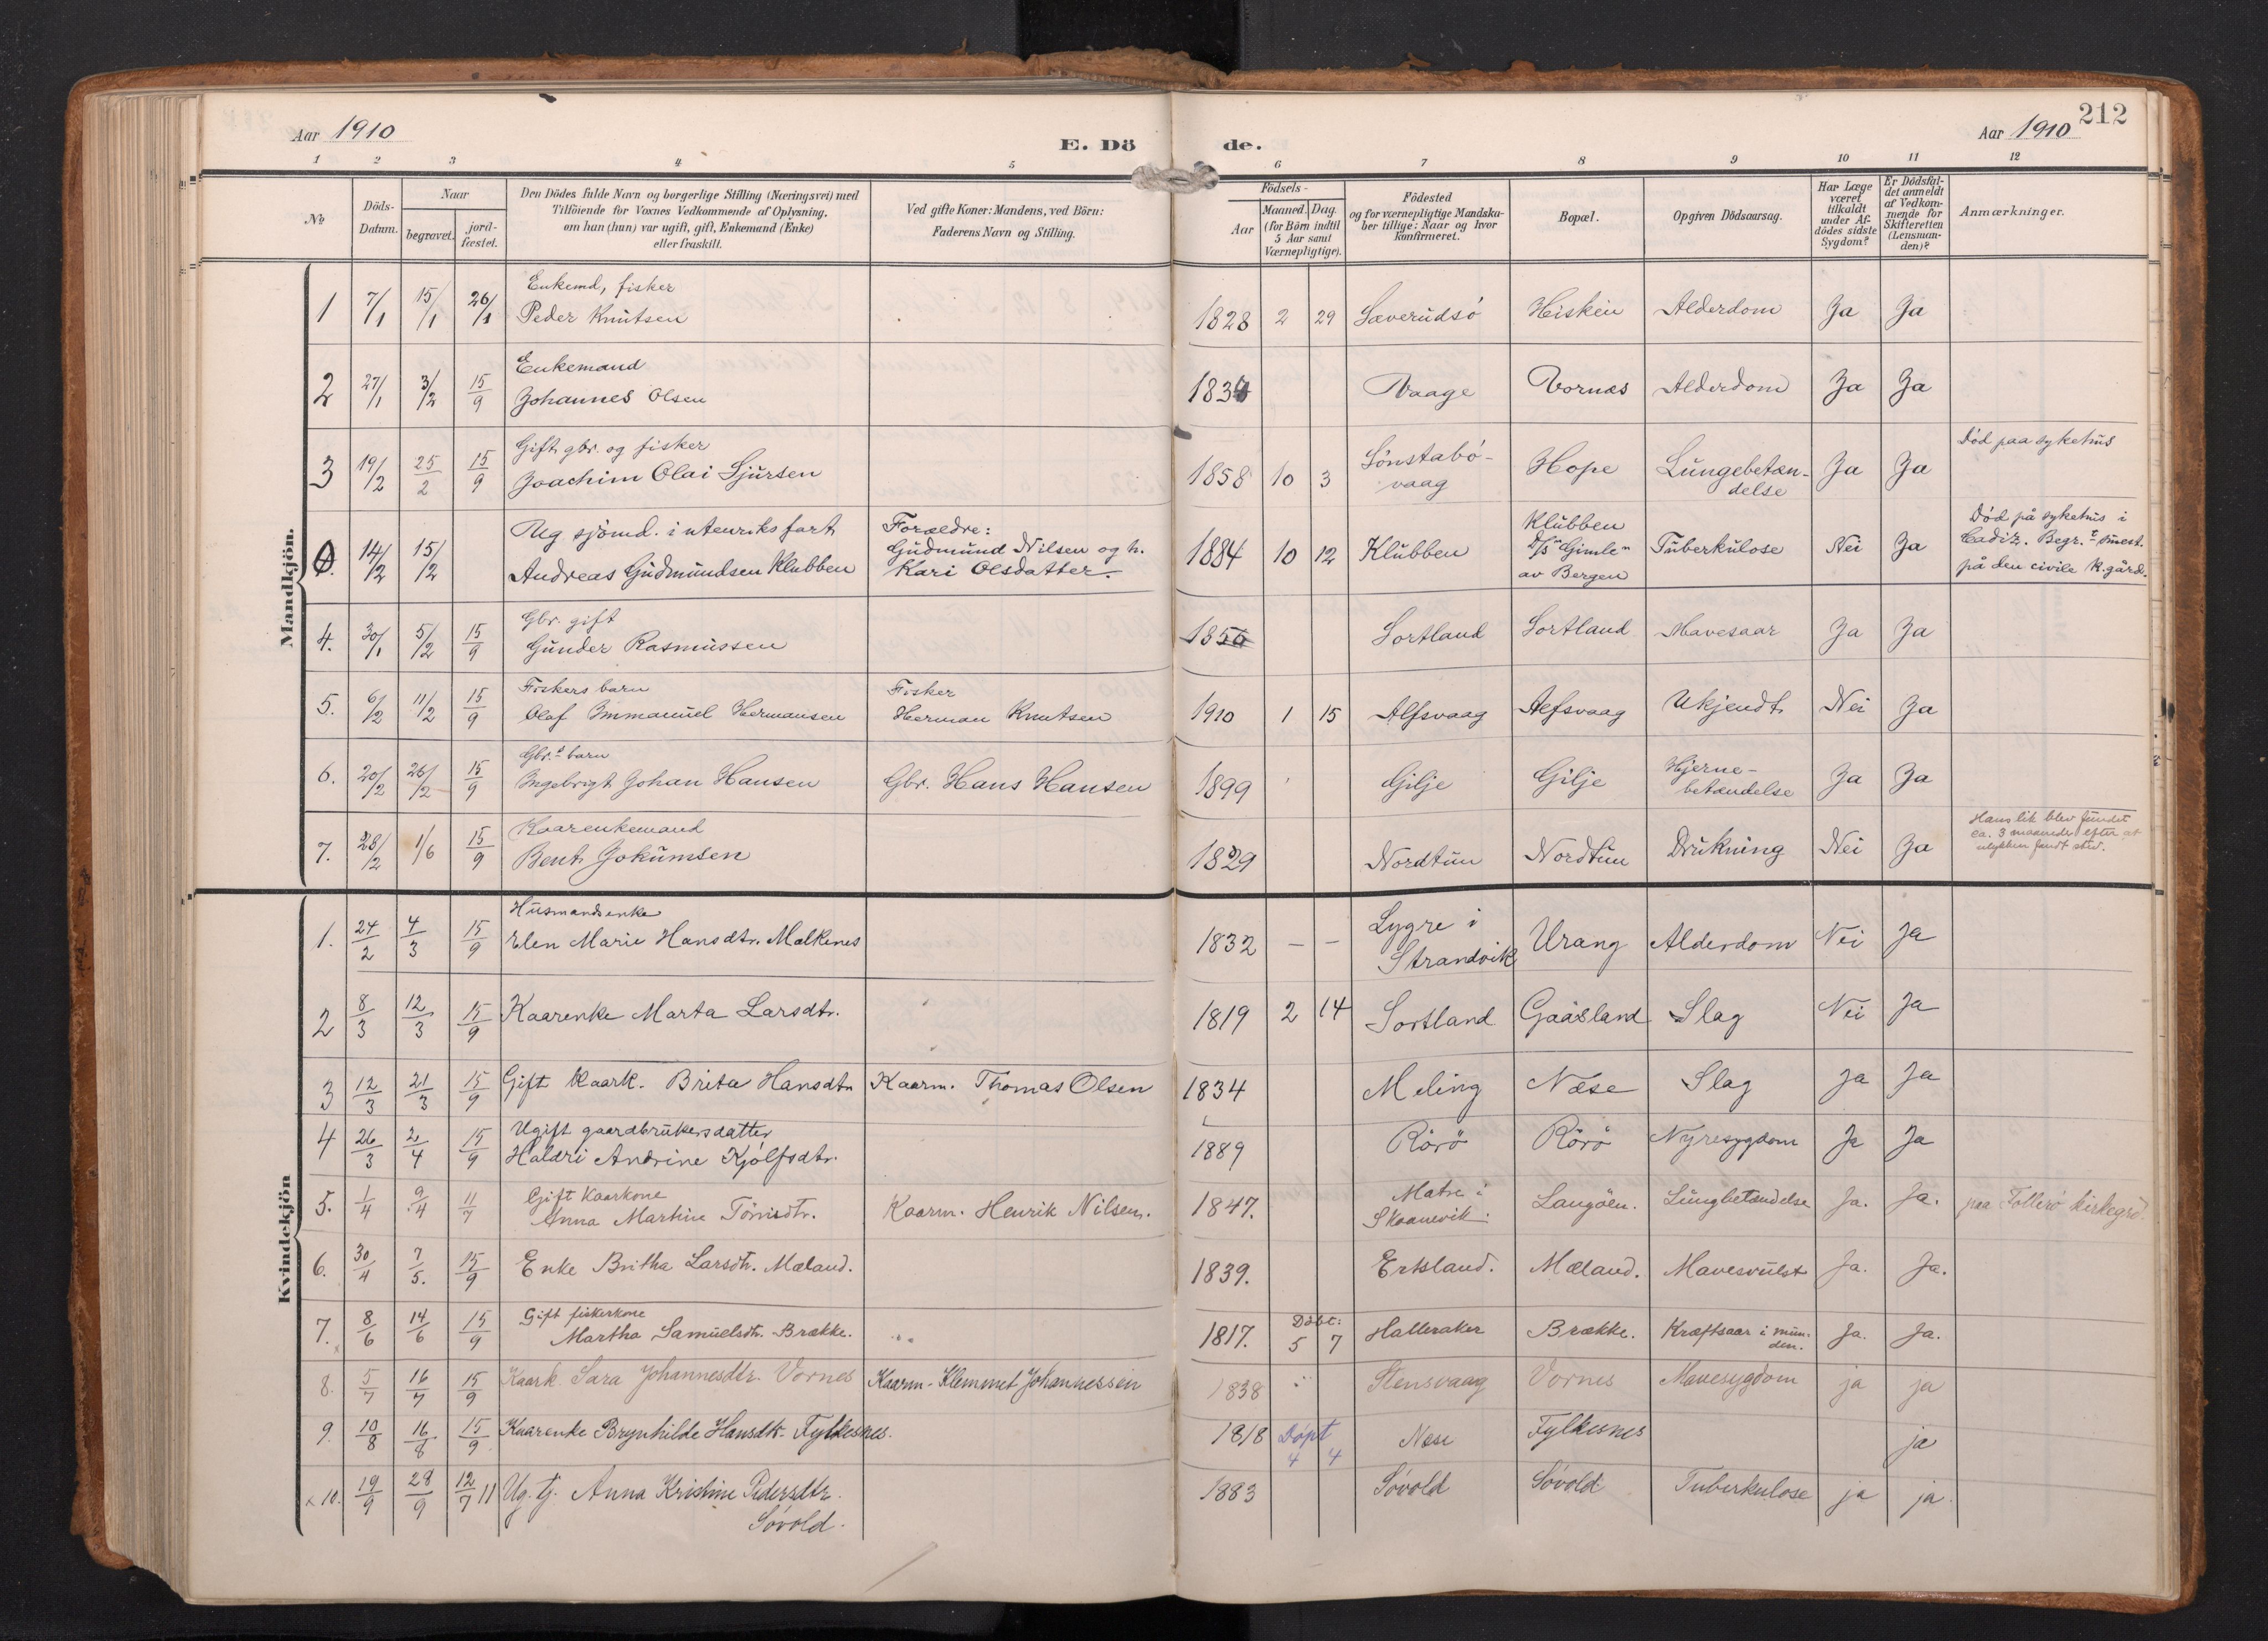 212
Aar 1910
E. Dö de.
Aar 1910
1 2 3 4 5 6 7 8 9 10 11 12
No
Döds-Datum.
Naar
begravet.
jord-fæstet.
Den Dödes fulde Navn og borgerlige Stilling (Næringsvei) med
Tilföiende for Voxnes Vedkommende af Oplysning,
om han (hun) var ugift, gift, Enkemand (Enke)
eller fraskilt.
Ved gifte Koner: Mandens, ved Börn:
Faderens Navn og Stilling.
Födsels-
Aar
Maaned. Dag.
(for Börn indtil
5 Aar samt
Værnepligtige).
Födested
og for værnepligtige Mandska-
ber tillige: Naar og hvor
konfirmeret.
Bopæl.
Opgiven Dödsaarsag.
Har Læge
været
tilkaldt
under Af-
dödes sidste
Sygdom?
Er Dödsfal-
det anmeldt
af Vedkom-
mende for
Skifteretten
(Lensman-
den)?
Anmærkninger.
Mandkjön.
1 7/1 15/1 26/1 Enkemd, fisker
Peder Knutsen 1828 2 29 Sæverudsö Hisken Alderdom Ja Ja
2 27/1 3/2 15/9 Enkemand
Johannes Olsen 1834 Vaage Vornæs Alderdom Ja Ja
3 19/2 25/2 15/9 Gift gbr. og fisker
Joachim Olai Sjursen 1858 10 3 Sönstabö-
vaag Hope Lungebetæn-
delse Ja Ja Död paa sykehus
14/2 15/2 Ug sjömd. i utenriksfart
Andreas Gudmundsen Klubben Forældre:
Gudmund Nilsen og h.
Kari Olsdatter. 1884 10 12 Klubben Klubben
D/S "Gimle"
av Bergen Tuberkulose Nei Ja Död på sykehus i
Cadiz. Begr.
på den civile k.gård.
4. 30/1 5/2 15/9 Gbr. gift
Gunder Rasmussen 1850 Sortland Sortland Mavesaar Ja Ja
5. 6/2 11/2 15/9 Fiskers barn
Olaf Immanuel Hermansen Fisker
Herman Knutsen 1910 1 15 Alfsvaag Aefsvaag Ukjendt Nei Ja
6. 20/2 26/2 15/9 Gbr.s barn
Ingebrigt Johan Hansen Gbr. Hans Hansen 1899 Gilje Gilje Hjerne-
betændelse Ja Ja
7. 28/2 1/6 15/9 Kaarenkemand
Bent Jokumsen 1829 Nordtun Nordtun Drukning Nei Ja Hans lik blev fundet
ca. 3 maaneder efter at
ulykken fandt sted.
Kvindekjön
1. 24/2 4/3 15/9 Husmandsenke
Elen Marie Hansdtr. Malkenes 1832 – – Lygre i
Strandvik Urang Alderdom Nei Ja
2 8/3 12/3 15/9 Kaarenke Marta Larsdtr. 1819 2 14 Sortland Gaasland Slag Nei Ja
3 12/3 21/3 15/9 Gift kaark. Brita Hansdtr Kaarm. Thomas Olsen 1834 Meling Næse Slag Ja Ja
4 26/3 2/4 15/9 Ugift gaardbrukersdatter
Haldri Andrine Kjölfsdtr. 1889 Rörö Rörö Nyresygdom Ja Ja
5. 1/4 9/4 11/7 Gift Kaarkone
Anna Martine Tönnisdtr. Kaarm. Henrik Nilsen. 1847. Matre i
Skaanevik. Langöen. Lungbetændelse Ja. Ja. paa Tollerö kirkegrd.
6. 30/4 7/5. 15/9 Enke Britha Larsdtr. Mæland. 1839. Erksland. Mæland. Mavesvulst Ja. Ja.
7. 8/6 14/6 15/9 Gift fiskerkone
Martha Samuelsdtr. Brække. 1817. Döbt:
5 7 Halleraker Brække. Kræftsaar i mun-
den. Ja. Ja.
8. 5/7 16/7 15/9 Kaark. Sara Johannesdtr. Vornes Kaarm. Klemmet Johannessen 1838 Stensvaag Vornes Mavesygdom ja ja
9. 10/8 16/8 15/9 Kaarenke Brynhilde Hansdtr. Fylkesnes. 1818 Döpt
4 4 Næse Fylkesnes ja
x 10. 19/9 28/9 12/7 11 Ug. tj. Anna Kristine Pedersdtr.
Sövold. 1883 Sövold Sövold Tuberkulose ja ja.